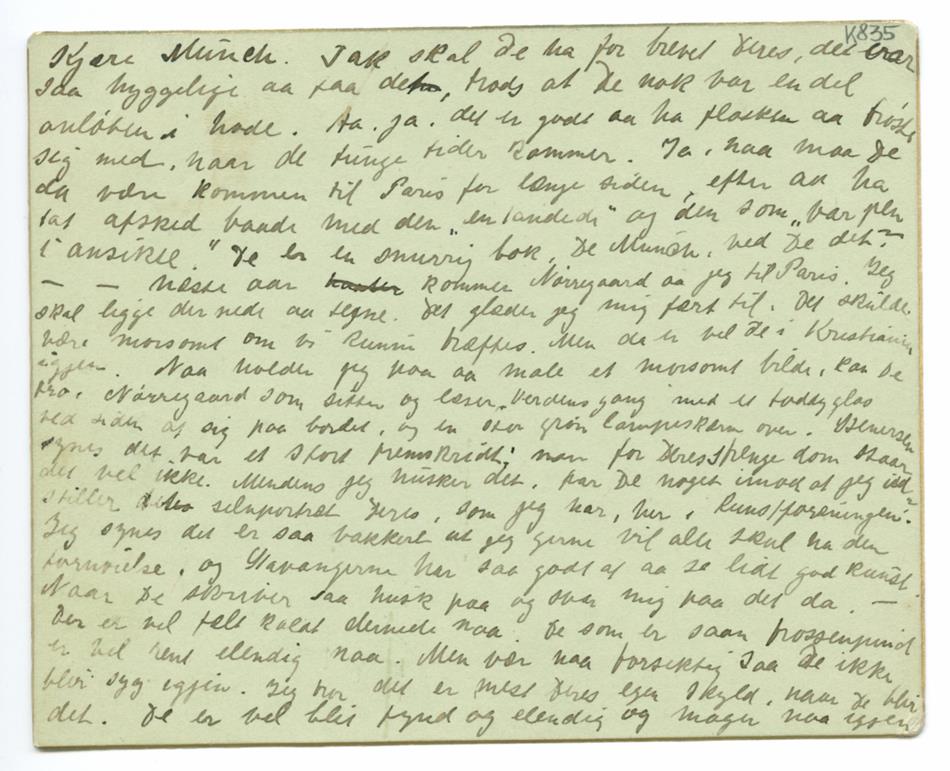 K835
Kjære Munch. Tak skal De ha for brevet Deres, det var
saa hyggelige aa faa det, trods at De nok var en del
anløben i hode. Aa. ja. det er godt aa ha flasken aa trøste
sig med, naar de tunge tider kommer. Ja, naa maa De
da være kommen til Paris for længe siden, efter aa ha
tat afsked baade med den „entandede" og den som „var pen
i ansikte." De er en snurrig bok, De Munch, ved De det?
— — næste aar kommer Nørregaard aa jeg til Paris. Jeg
skal ligge dernede aa tegne. Det glæder jeg mig fært til. Det skulde
være morsomt om vi kunne træffes. Men da er vel De i Kristiania
igjen. Naa holder jeg paa aa male et morsomt bilde, kan De
tro. Nørregaard som sitter og læser Verdens gang med et toddyglas
ved siden af sig paa bordet, og en stor grøn lampeskærm over.
synes det var et stort fremskridt; men for Deres strenge dom staar
det vel ikke. Mendens jeg husker det, har De noget imod at jeg ud-
stiller selvportræt Deres, som jeg har, her i Kunstforeningen?
Jeg synes det er saa vakkert at jeg gerne vil alle skul ha den
fornøielse, og Stavangerne har saa godt af aa se lidt god kunst.
Naar De skriver saa husk paa og svar mig paa det da. —
Der er vel fælt kaldt dernede naa. De som er saan frossenpind
er vel rent elendig naa. Men vær naa forsiktig saa De ikke
blir syg igjen. Jeg tror det er mest Deres egen skyld, naar De blir
det. De er vel blit tynd og elendig og mager naa igjen